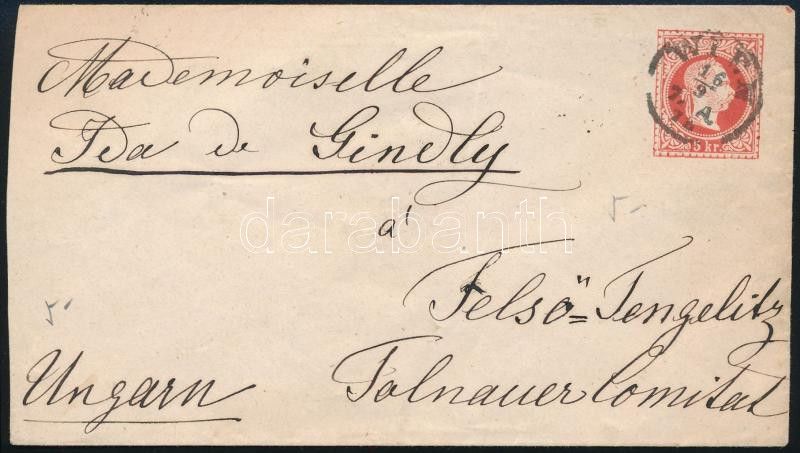 Mademoiselle
Ida de Gindly
à
Felsö=Tengelitz
Tolnauer Comitat
Ungarn
WIEN
16
9
A
5 kr.
5-
5-
darabanth